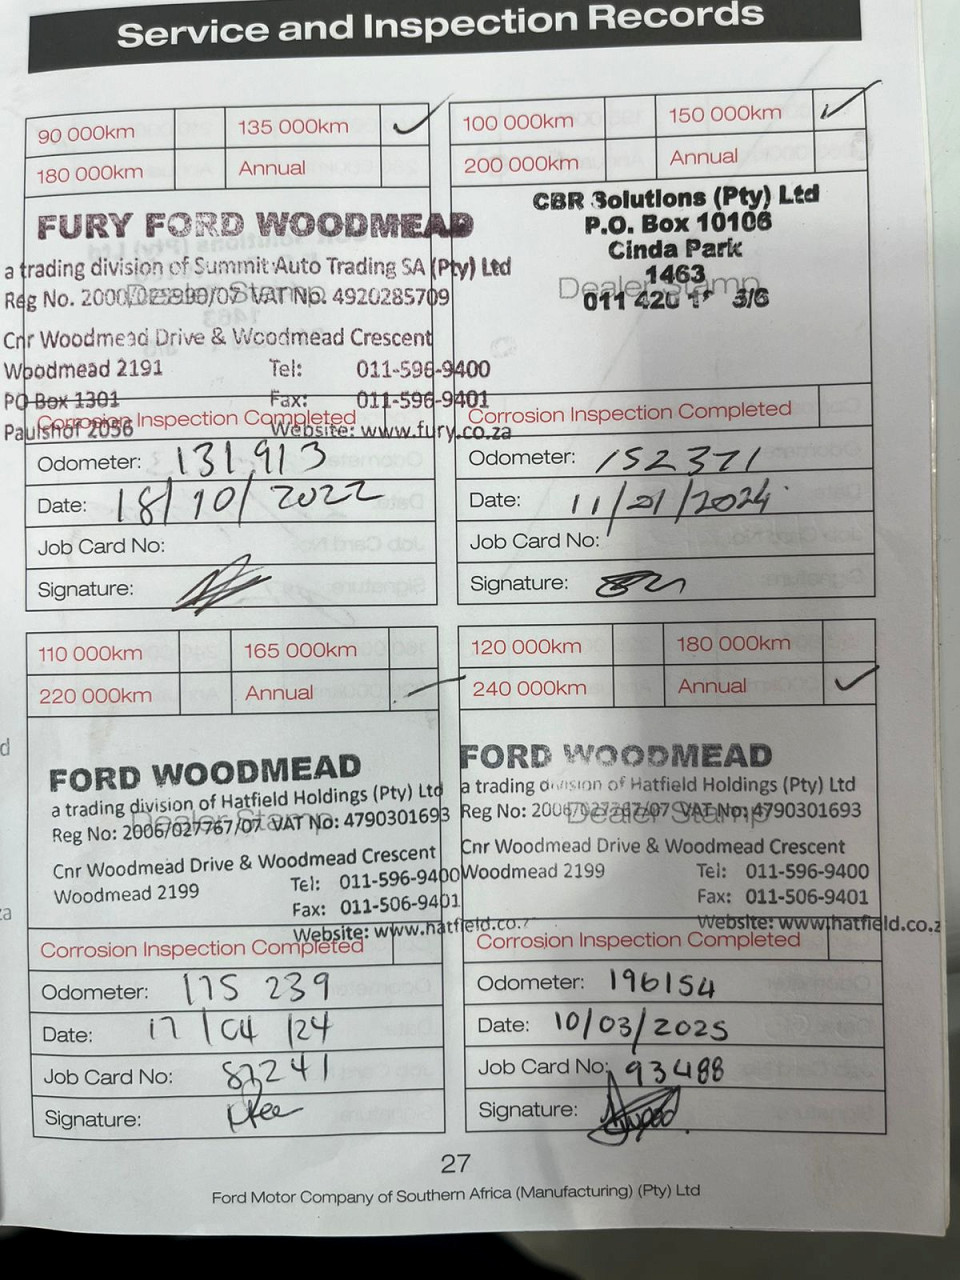 Service and Inspection Records
90 000km 135 000km ✓
180 000km Annual
FURY FORD WOODMEAD
a trading division of Summit Auto Trading SA (Pty) Ltd
Dealer Stamp
Reg No. 2000/ /07 VAT No: 4920285709
Cnr Woodmead Drive & Woodmead Crescent
Woodmead 2191 Tel: 011-596-9400
PO Box 1301 Fax: 011-596-9401
Corrosion Inspection Completed
Paulshof 2056 Website: www.fury.co.za
Odometer: 131913
Date: 18/10/2022
Job Card No:
Signature:
100 000km 150 000km ✓
200 000km Annual
CBR Solutions (Pty) Ltd
P.O. Box 10106
Cinda Park
1463
Dealer Stamp
011 420 3/6
Corrosion Inspection Completed
Odometer: 152371
Date: 11/01/2024
Job Card No:
Signature:
110 000km 165 000km
220 000km Annual ✓
FORD WOODMEAD
a trading division of Hatfield Holdings (Pty) Ltd
Dealer Stamp
Reg No: 2006/027767/07 VAT No: 4790301693
Cnr Woodmead Drive & Woodmead Crescent
Woodmead 2199 Tel: 011-596-9400
Fax: 011-506-9401
Website: www.hatfield.co.z
Corrosion Inspection Completed
Odometer: 175 239
Date: 17/04/24
Job Card No: 87241
Signature:
120 000km 180 000km
240 000km Annual ✓
FORD WOODMEAD
a trading division of Hatfield Holdings (Pty) Ltd
Dealer Stamp
Reg No: 2006/027767/07 VAT No: 4790301693
Cnr Woodmead Drive & Woodmead Crescent
Woodmead 2199 Tel: 011-596-9400
Fax: 011-506-9401
Website: www.hatfield.co.z
Corrosion Inspection Completed
Odometer: 196154
Date: 10/03/2025
Job Card No: 93488
Signature:
27
Ford Motor Company of Southern Africa (Manufacturing) (Pty) Ltd